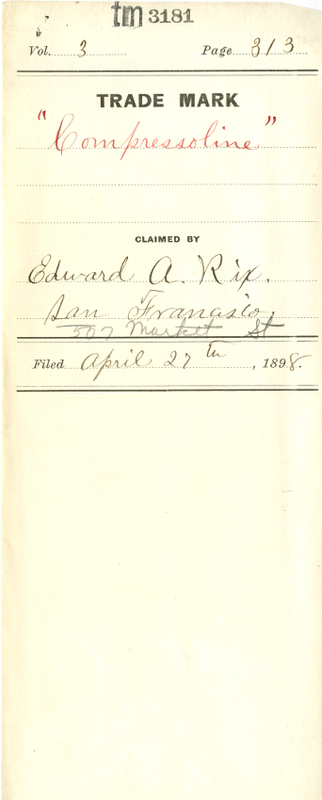 tm 3181
Vol. 3 Page 313
TRADE MARK
"Compressoline"
CLAIMED BY
Edward A. Rix.
San Francisco,
507 Market St
Filed April 27th, 1898.